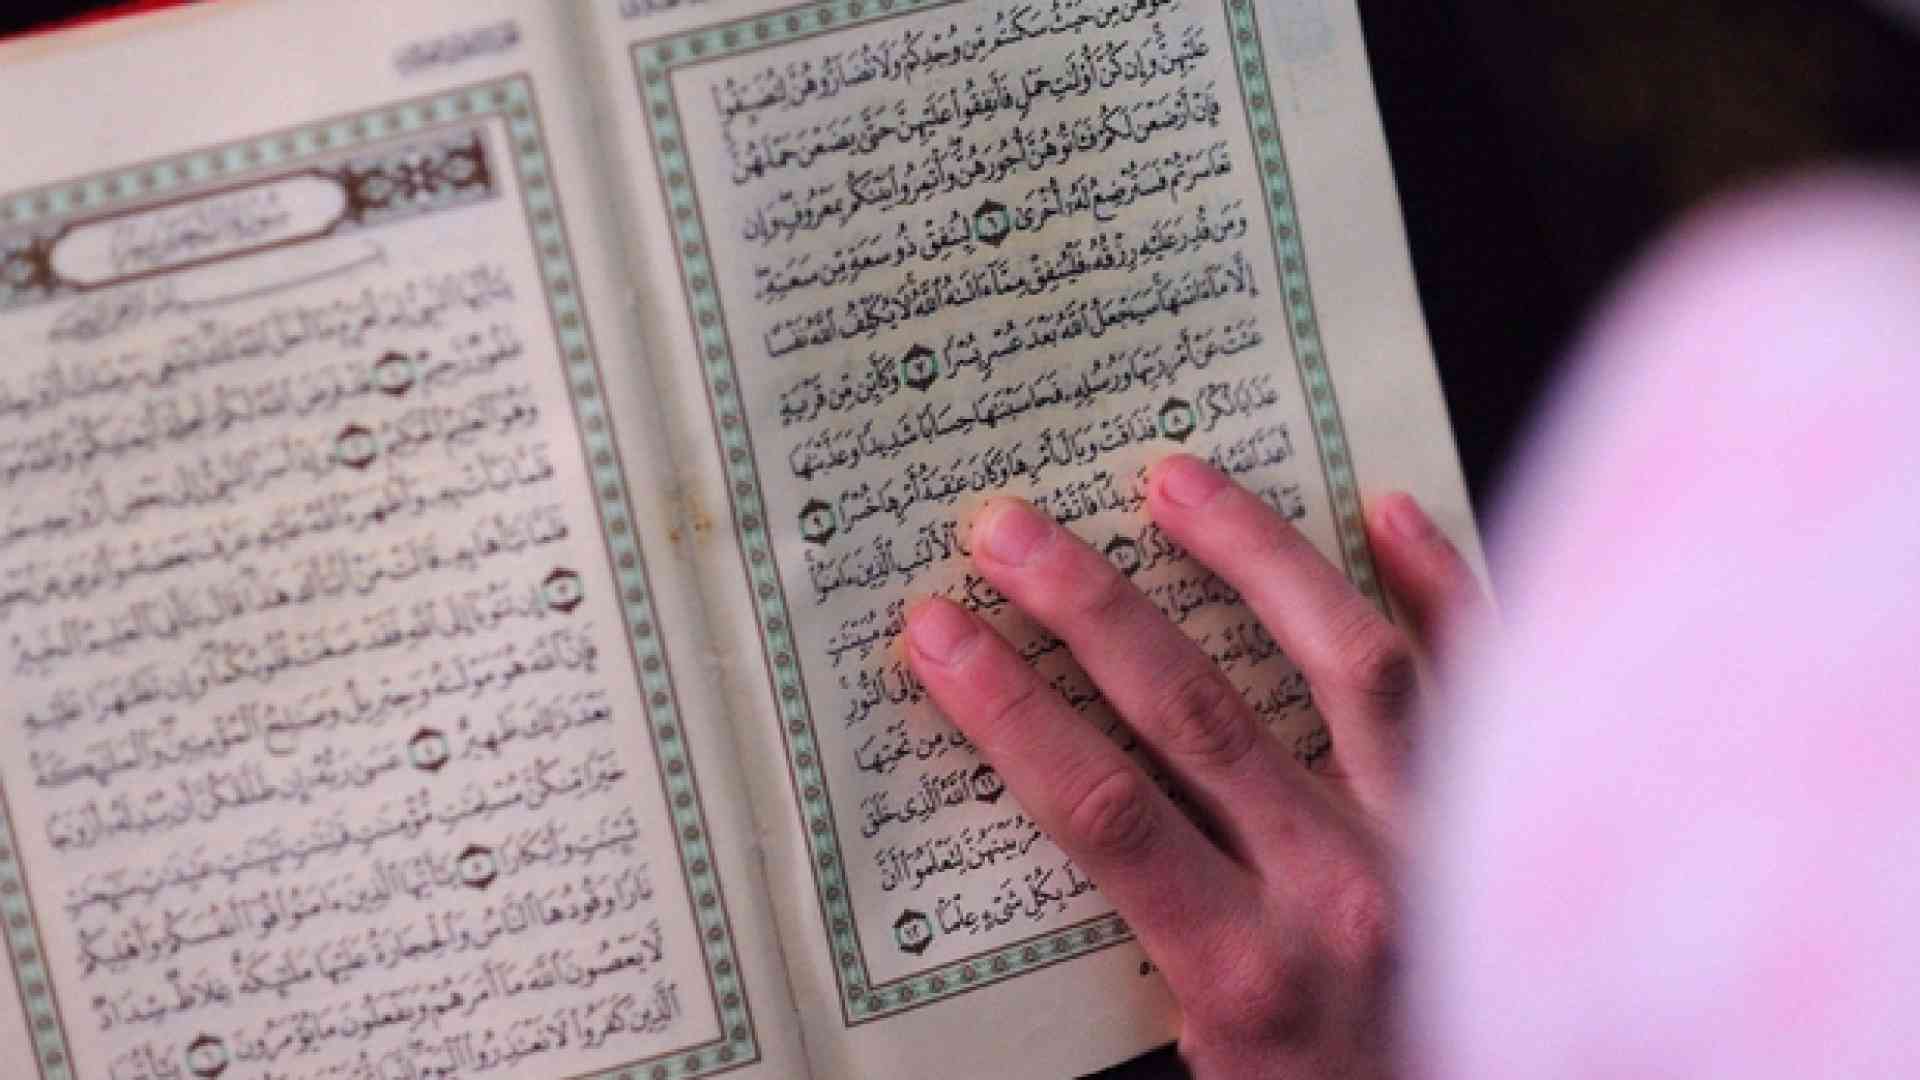 مِنْ حَيْثُ سَكَنتُم مِّن وُجْدِكُمْ وَلَا تُضَآرُّوهُنَّ لِتُضَيِّقُوا۟
عَلَيْهِنَّ وَإِن كُنَّ أُو۟لَٰتِ حَمْلٍ فَأَنفِقُوا۟ عَلَيْهِنَّ حَتَّىٰ يَضَعْنَ حَمْلَهُنَّ
فَإِنْ أَرْضَعْنَ لَكُمْ فَـَٔاتُوهُنَّ أُجُورَهُنَّ وَأْتَمِرُوا۟ بَيْنَكُم بِمَعْرُوفٍ وَإِن
تَعَاسَرْتُمْ فَسَتُرْضِعُ لَهُۥٓ أُخْرَىٰ ٦ لِيُنفِقْ ذُو سَعَةٍ مِّن سَعَتِهِۦ
وَمَن قُدِرَ عَلَيْهِ رِزْقُهُۥ فَلْيُنفِقْ مِمَّآ ءَاتَىٰهُ ٱللَّهُ لَا يُكَلِّفُ ٱللَّهُ نَفْسًا
إِلَّا مَآ ءَاتَىٰهَا سَيَجْعَلُ ٱللَّهُ بَعْدَ عُسْرٍ يُسْرًا ٧ وَكَأَيِّن مِّن قَرْيَةٍ
عَتَتْ عَنْ أَمْرِ رَبِّهَا وَرُسُلِهِۦ فَحَاسَبْنَٰهَا حِسَابًا شَدِيدًا وَعَذَّبْنَٰهَا
عَذَابًا نُّكْرًا ٨ فَذَاقَتْ وَبَالَ أَمْرِهَا وَكَانَ عَٰقِبَةُ أَمْرِهَا خُسْرًا ٩
أَعَدَّ ٱللَّهُ شَدِيدًا فَٱتَّقُوا۟ ٱلْأَلْبَٰبِ ٱلَّذِينَ ءَامَنُوا۟
ذِكْرًا ١٠ ٱللَّهِ مُبَيِّنَٰتٍ
ءَامَنُوا۟ إِلَى ٱلنُّورِ
مِن تَحْتِهَا
١١ ٱللَّهُ ٱلَّذِى خَلَقَ
بَيْنَهُنَّ لِتَعْلَمُوٓا۟ أَنَّ
بِكُلِّ شَىْءٍ عِلْمًۢا ١٢
سُورَةُ التَّحْرِيمِ
يَٰٓأَيُّهَا ٱلنَّبِىُّ لِمَ تُحَرِّمُ مَآ أَحَلَّ ٱللَّهُ لَكَ تَبْتَغِى مَرْضَاتَ أَزْوَٰجِكَ
غَفُورٌ رَّحِيمٌ ١ قَدْ فَرَضَ ٱللَّهُ لَكُمْ تَحِلَّةَ أَيْمَٰنِكُمْ وَٱللَّهُ
وَهُوَ ٱلْعَلِيمُ ٱلْحَكِيمُ ٢ وَإِذْ أَسَرَّ ٱلنَّبِىُّ إِلَىٰ بَعْضِ أَزْوَٰجِهِۦ
فَلَمَّا نَبَّأَتْ بِهِۦ وَأَظْهَرَهُ ٱللَّهُ عَلَيْهِ عَرَّفَ بَعْضَهُۥ وَأَعْرَضَ
فَلَمَّا نَبَّأَهَا بِهِۦ قَالَتْ مَنْ أَنۢبَأَكَ هَٰذَا قَالَ نَبَّأَنِىَ ٱلْعَلِيمُ ٱلْخَبِيرُ
٣ إِن تَتُوبَآ إِلَى ٱللَّهِ فَقَدْ صَغَتْ قُلُوبُكُمَا وَإِن تَظَٰهَرَا عَلَيْهِ
فَإِنَّ ٱللَّهَ هُوَ مَوْلَىٰهُ وَجِبْرِيلُ وَصَٰلِحُ ٱلْمُؤْمِنِينَ وَٱلْمَلَٰٓئِكَةُ
بَعْدَ ذَٰلِكَ ظَهِيرٌ ٤ عَسَىٰ رَبُّهُۥٓ إِن طَلَّقَكُنَّ أَن يُبْدِلَهُۥٓ أَزْوَٰجًا
خَيْرًا مِّنكُنَّ مُسْلِمَٰتٍ مُّؤْمِنَٰتٍ قَٰنِتَٰتٍ تَٰٓئِبَٰتٍ عَٰبِدَٰتٍ سَٰٓئِحَٰتٍ
ثَيِّبَٰتٍ وَأَبْكَارًا ٥ يَٰٓأَيُّهَا ٱلَّذِينَ ءَامَنُوا۟ قُوٓا۟ أَنفُسَكُمْ وَأَهْلِيكُمْ
نَارًا وَقُودُهَا ٱلنَّاسُ وَٱلْحِجَارَةُ عَلَيْهَا مَلَٰٓئِكَةٌ غِلَاظٌ شِدَادٌ
لَّا يَعْصُونَ ٱللَّهَ مَآ أَمَرَهُمْ وَيَفْعَلُونَ مَا يُؤْمَرُونَ ٦ يَٰٓأَيُّهَا
ٱلَّذِينَ كَفَرُوا۟ لَا تَعْتَذِرُوا۟ ٱلْيَوْمَ إِنَّمَا